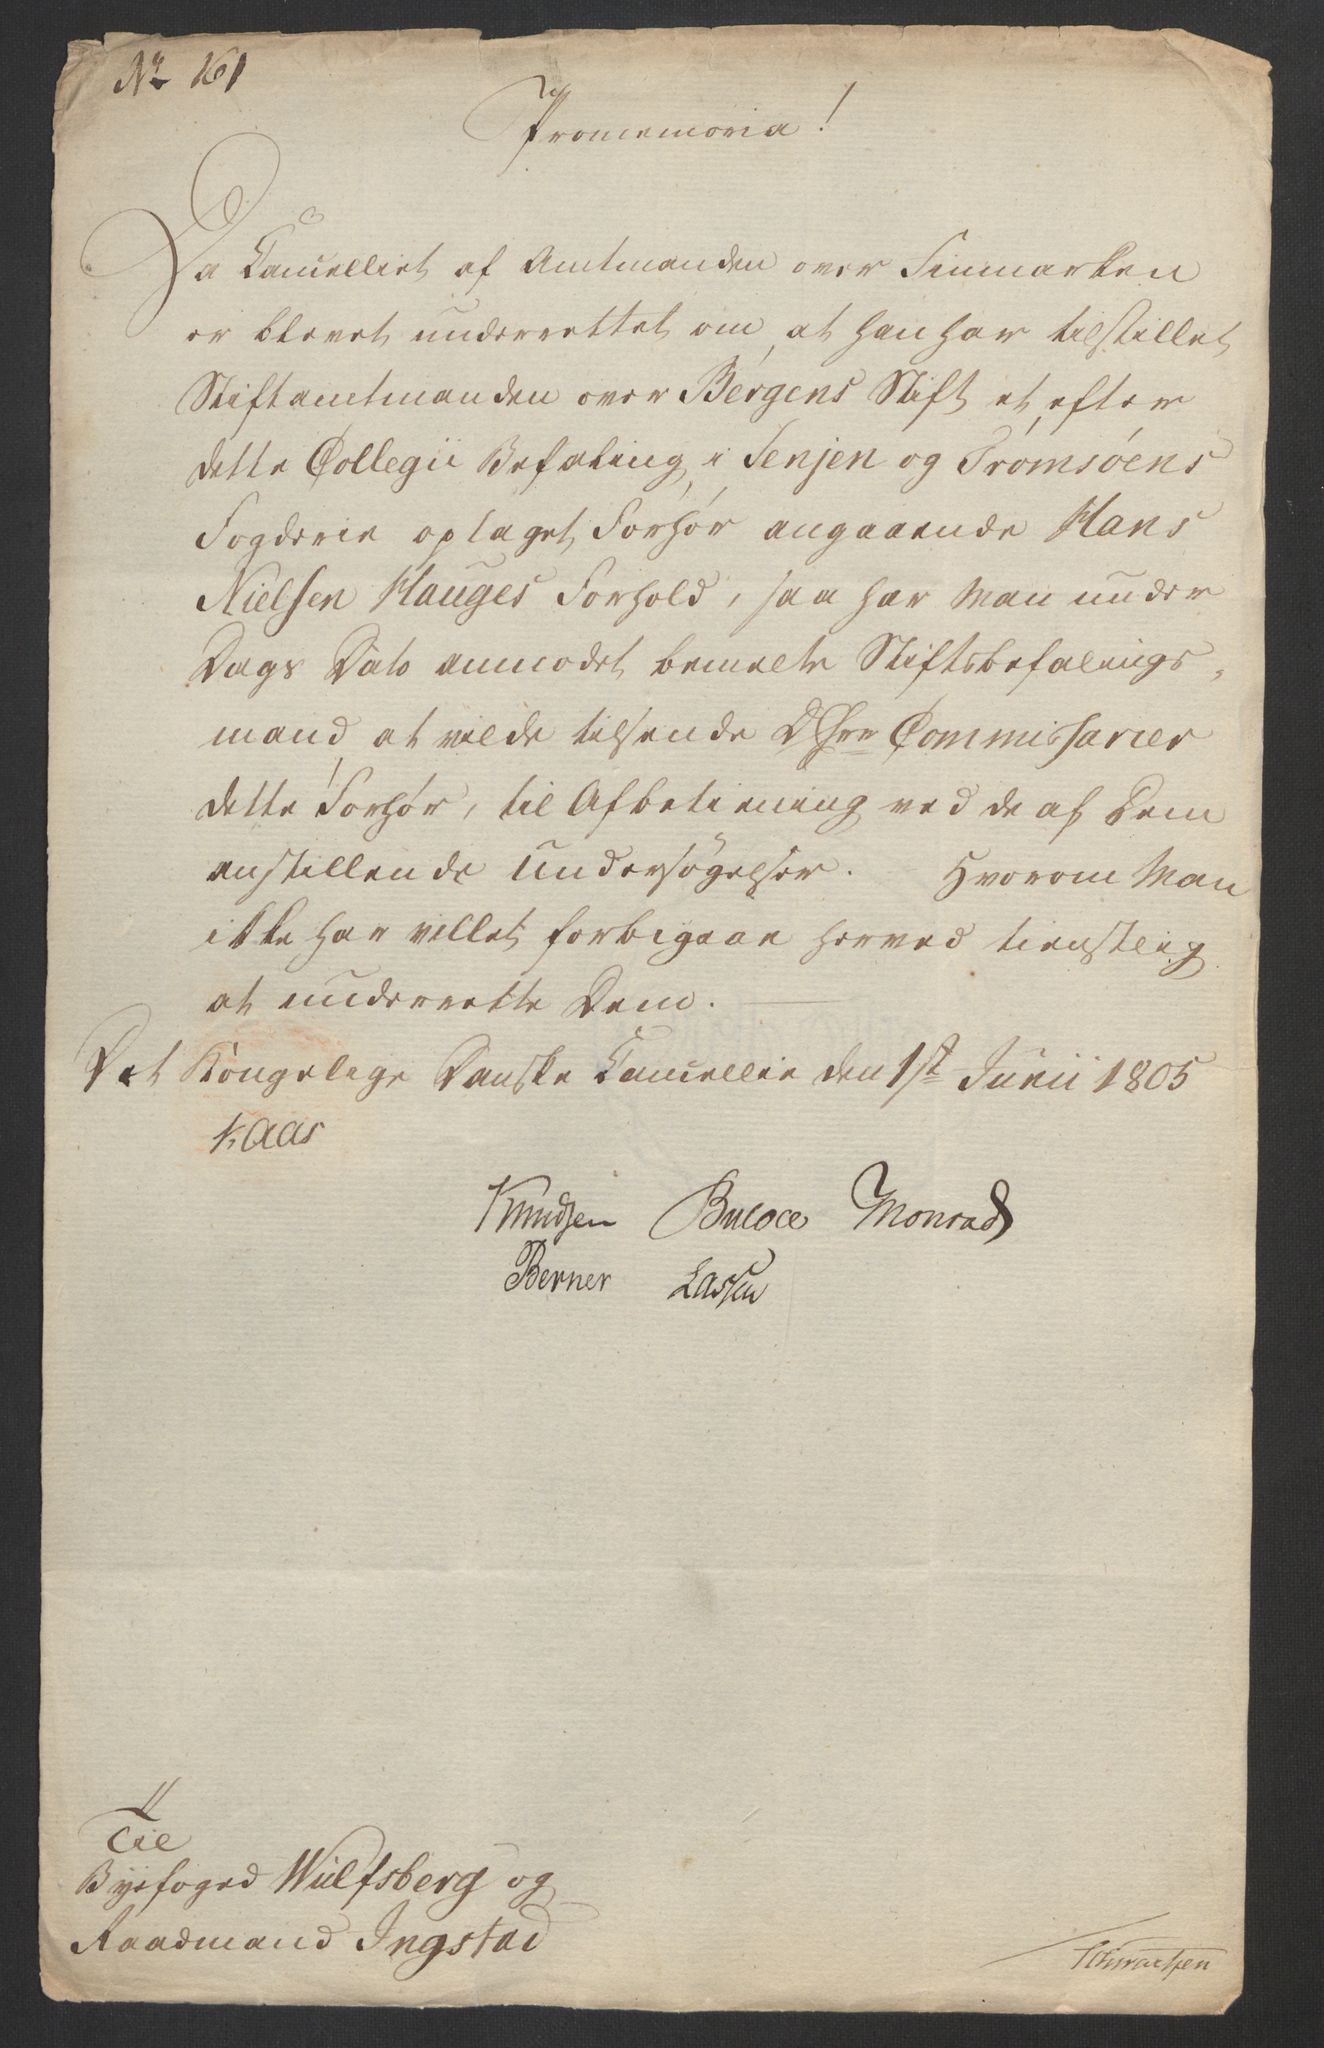 No 161
Promemoria!
Da Cancelliet af Amtmanden over Finmarken
er blevet underrettet om, at han har tilstillet
Stiftamtmanden over Bergens Stift et, efter
dette Collegii Befaling, i Senjen og Tromsøens
Fogderie optaget Forhør angaaende Hans
Nielsen Hauges Forhold, saa har Man under
Dags Dato anmodet bemelte Stiftsbefalings-
mand, at vilde tilsende D Hrr Commissarier
dette Forhør, til Afbetiening ved de af Dem
anstillende Undersøgelser. Hvorom Man
ikke har villet forbigaae herved tienstlig
at underrette Dem.
Det Kongelige Danske Cancellie den 1st Junii 1805
Kaas
Knudsen Bülow Monrad
Berner Lassen
Til
Byefoged Wulfsberg og
Raadmand Ingstad